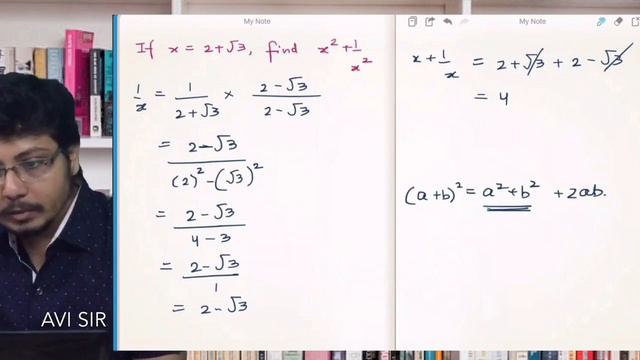 My Note
If x = 2+√3, find x² + 1/x²
1/x = 1/(2+√3) × (2-√3)/(2-√3)
= (2-√3)/((2)² - (√3)²)
= (2-√3)/(4-3)
= (2-√3)/1
= 2-√3
AVI SIR
My Note
x + 1/x = 2+√3 + 2-√3
= 4
(a+b)² = a²+b² + 2ab.